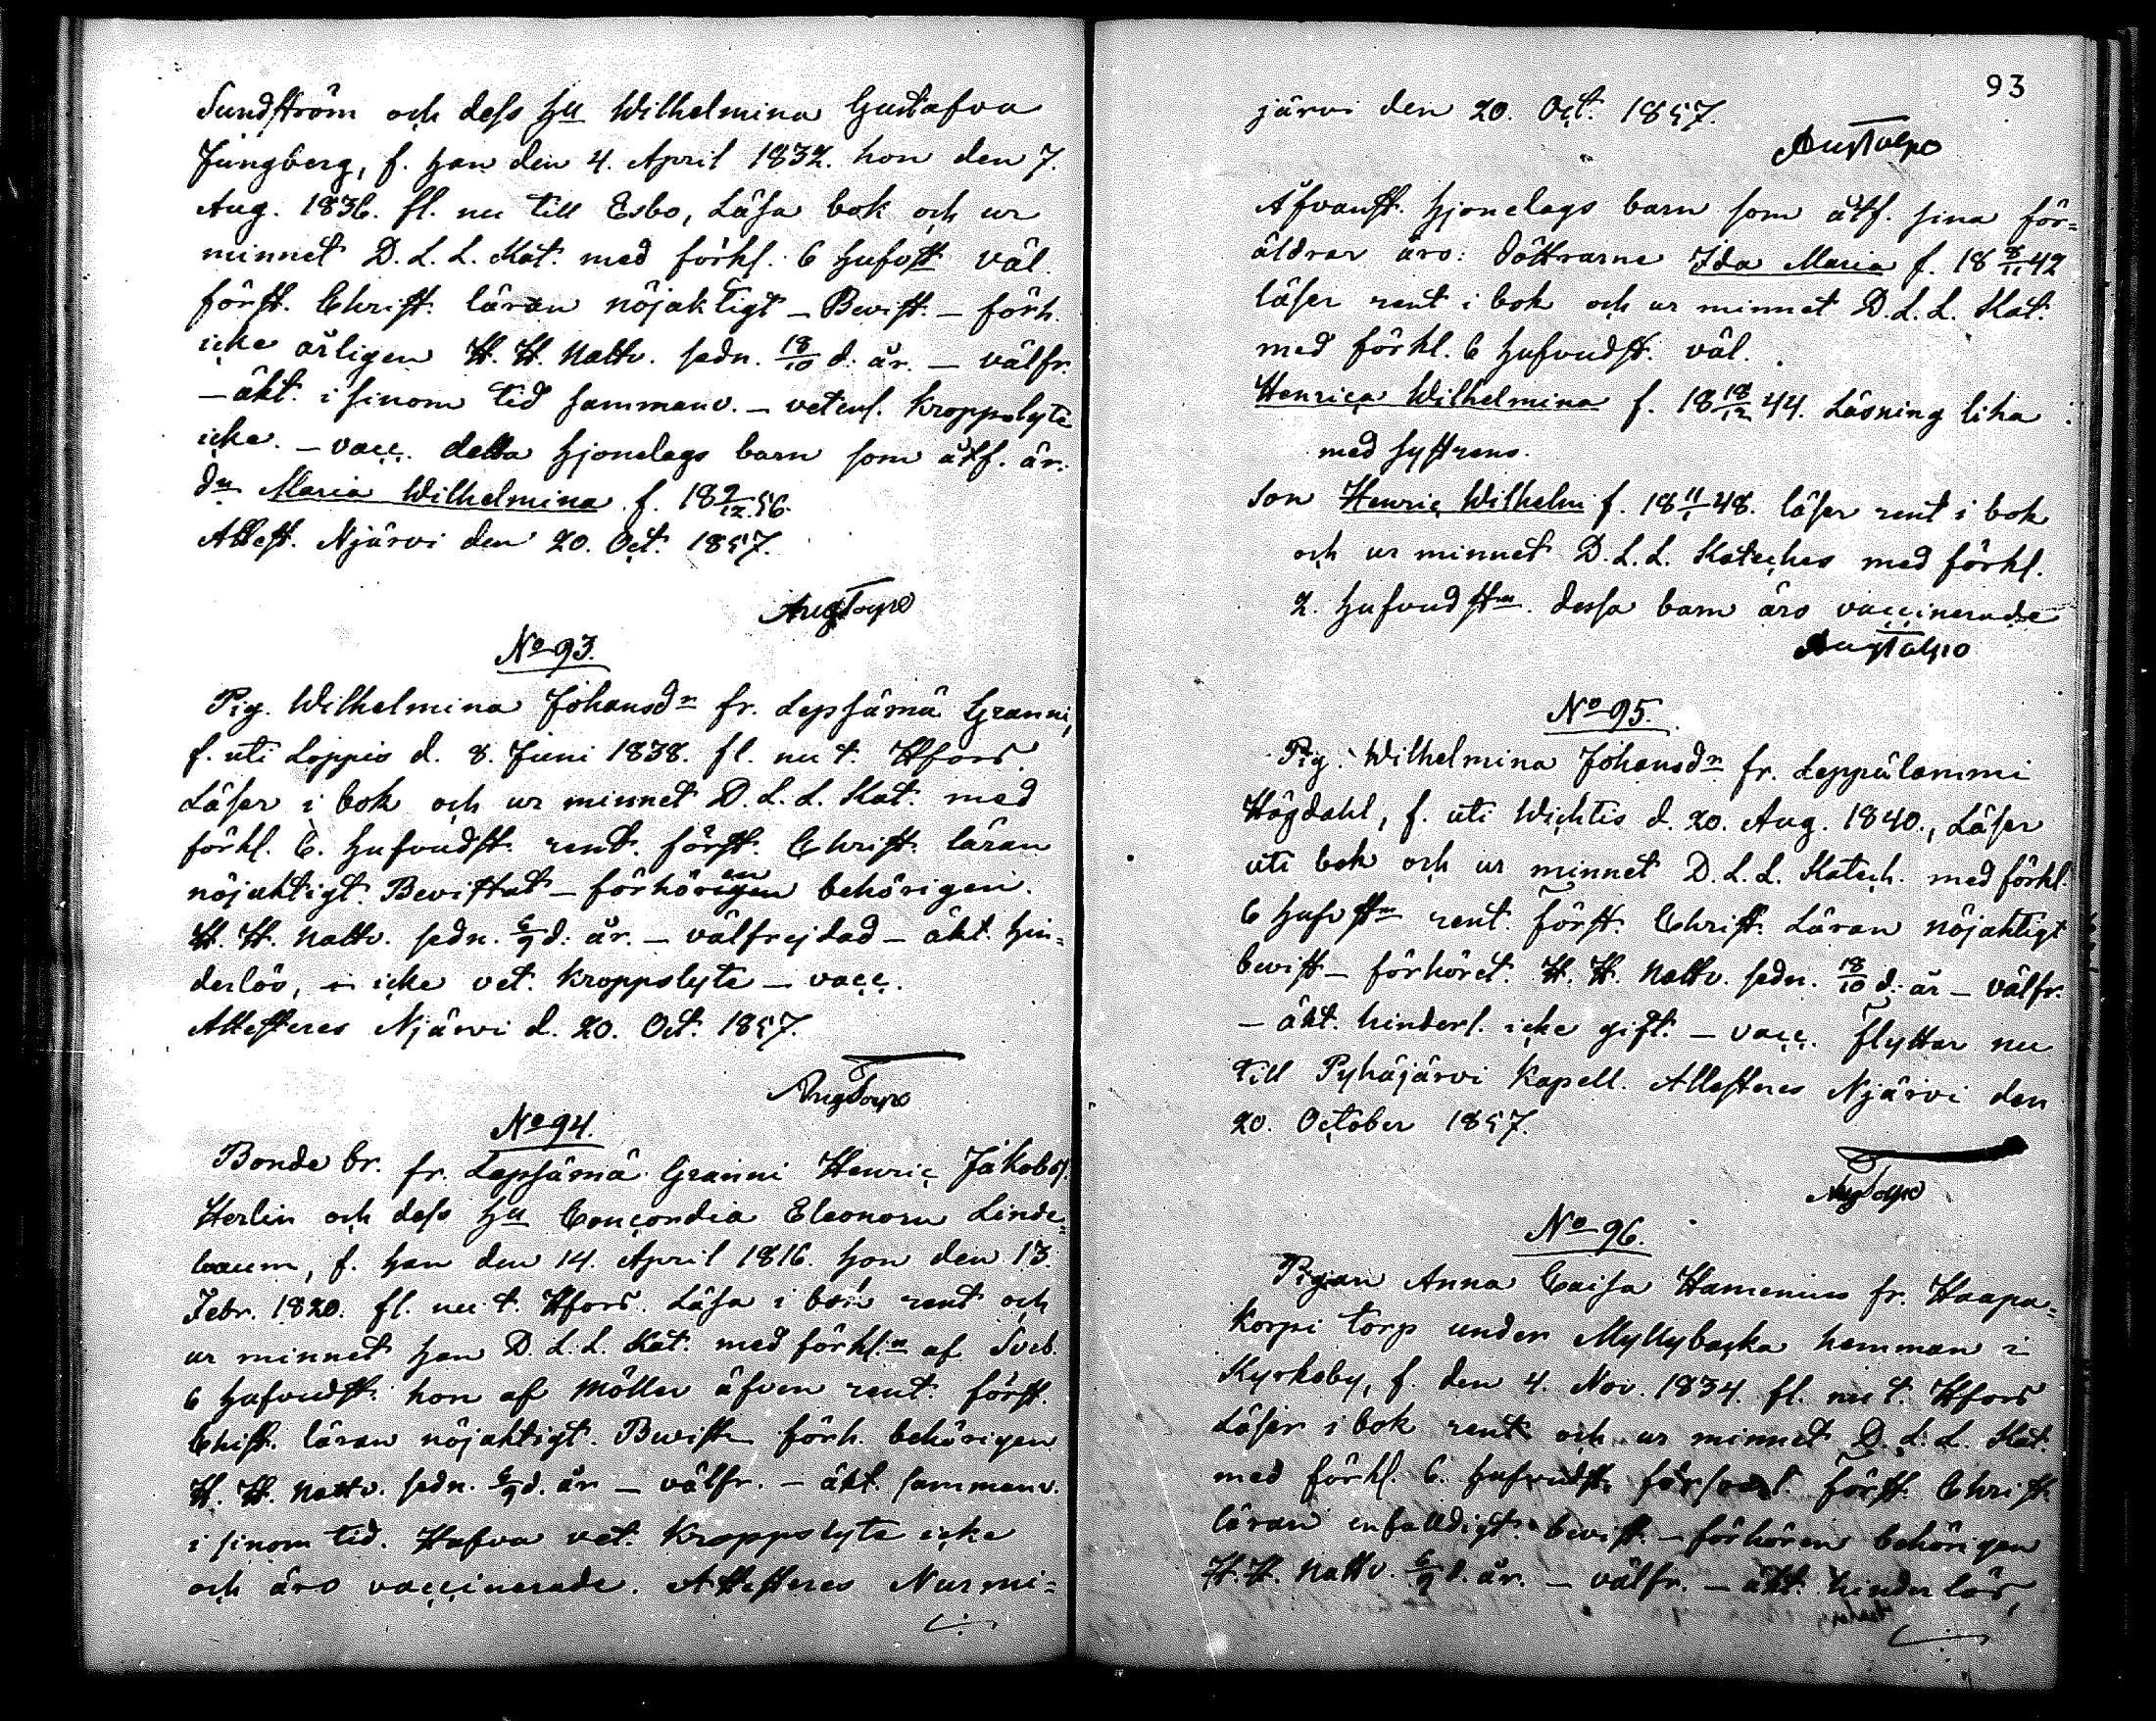 Sundström och dess Hu Wilhelmina Gustafva
Jungberg, f. han den 4. April 1832. hon den 7.
Aug. 1836. fl. nu till Esbo, Läsa bok och ur
minnet D. L. L. Kat. med förkl. 6 hufvst väl.
först. Christ. läran nöjaktigt – Bevist. – förh.
icke årligen H. H. Nattv. sedn. 18/10 d. år. – välfr.
– äkt. i sinom tid sammanv. – veterl. kroppslyte
icke. – vacc. detta hjonelags barn som åtf. är.
dn Maria Wilhelmina f. 18 9/12 56.
Attest. Njärvi den 20. Oct. 1857.
Aug Tolpo
No 93.
Pig. Wilhelmina Johansdr fr. Lepsämä Granni,
f. uti Loppis d. 8. Juni 1838. fl. nu t. Hfors.
Läser i bok och ur minnet D. L. L. Kat. med
förkl. 6. hufvudst. rent. först. Christ. läran
nöjaktigt. Bevistat – förhören behörigen.
H. H. Nattv. sedn. 6/9 d. år. – välfrejdad – äkt. hin=
derlös, icke vet. kroppslyte – vacc.
Attesteres Njärvi d. 20. Oct. 1857.
Aug Tolpo
No 94.
Bonde br. fr. Lepsämä Granni Henric Jakobs.
Herlin och dess Hu Concordia Eleonora Linde=
baum, f. han den 14. April 1816. hon den 13.
Febr. 1820. fl. nu t. Hfors. Läsa i bok rent och
ur minnet han D. L. L. Kat. med förkl.n af Sveb.
6 hufvudst. hon af Möller äfven rent först.
Chist. läran nöjaktigt. Bevist förh. behörigen
H. H. Nattv. sedn. 6/9 d. år – välfr. – äkt. sammanv.
i sinom tid. Hafva vet. kroppslyte icke
och äro vaccinerade. Attesteres Nurmi=
./.
93
järvi den 20. Oct. 1857.
Aug Tolpo
Äfvanst. hjonelags barn som åtf. sina för=
äldrar äro: döttrarne Ida Maria f. 18 8/11 42
läser rent i bok och ur minnet D. L. L. Kat.
med förkl. 6 hufvudst. väl.
Henrica Wilhelmina f. 18 18/12 44. Läsning lika
med systrens.
son Henric Wilhelm f. 18 11/1 48. läser rent i bok
och ur minnet D. L. L. Kateches med förkl.
2. hufvudstn. dessa barn äro vaccinerade
Aug Tolpo
No 95.
Pig. Wilhelmina Johansdr fr. Leppälammi
Högdahl, f. uti Wichtis d. 20. Aug. 1840., Läser
uti bok och ur minnet D. L. L. Katech. med förkl.
6 hufvstn rent. först. Christ. Läran nöjaktigt
bevist – förhöret. H. H. Nattv. sedn. 18/10 d. år – välfr.
– äkt. hinderl. icke gift. – vacc. flyttar nu
till Pyhäjärvi Kapell. Attesteres Njärvi den
20. October 1857.
Aug Tolpo
No 96.
Pigan Anna Caisa Hamenius fr. Haapa=
korpi torp under Myllybacka hemman i
Kyrkoby, f. den 4. Nov. 1834. fl. nu t. Hfors
Läser i bok rent och ur minnet D. L. L. Kat.
med förkl. 6. hufvudst. försvarl. först. Christ.
läran enfalldigt. bevist. – förhören behörigen
H. H. Nattv. 6/9 d. år. – välfr. – äkt. hinderlös,
./.